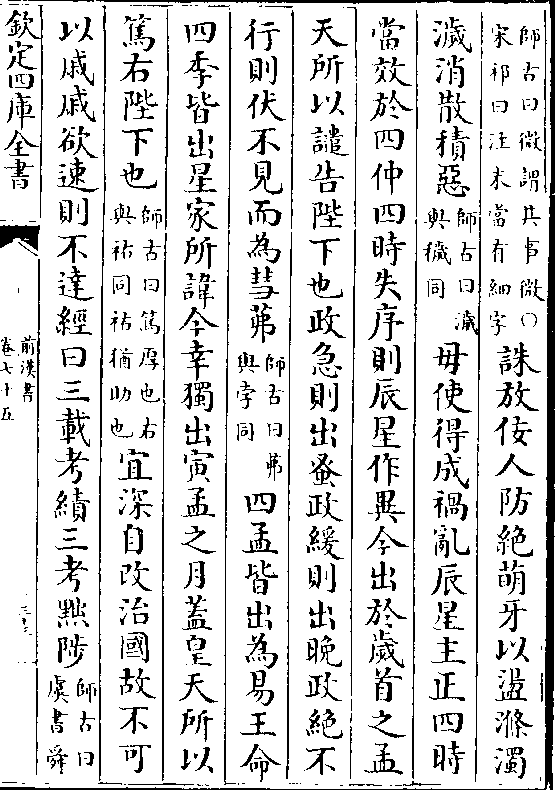 師古曰微謂其事微〇
宋祁曰注末當有細字
誅放佞人防絶萌牙以盪滌濁
濊消散積惡師古曰濊與穢同毋使得成禍亂辰星主正四時
當效於四仲四時失序則辰星作異今出於歲首之孟
天所以譴告陛下也政急則出蚤政緩則出晚政絶不
行則伏不見而為彗茀師古曰茀與孛同四孟皆出為易王命
四季皆出星家所諱今幸獨出寅孟之月蓋皇天所以
篤右陛下也師古曰篤厚也右與祐同祐猶助也宜深自改治國故不可
以戚戚欲速則不達經曰三載考績三考黜陟師古曰虞書舜
欽定四庫全書
前漢書
卷七十五